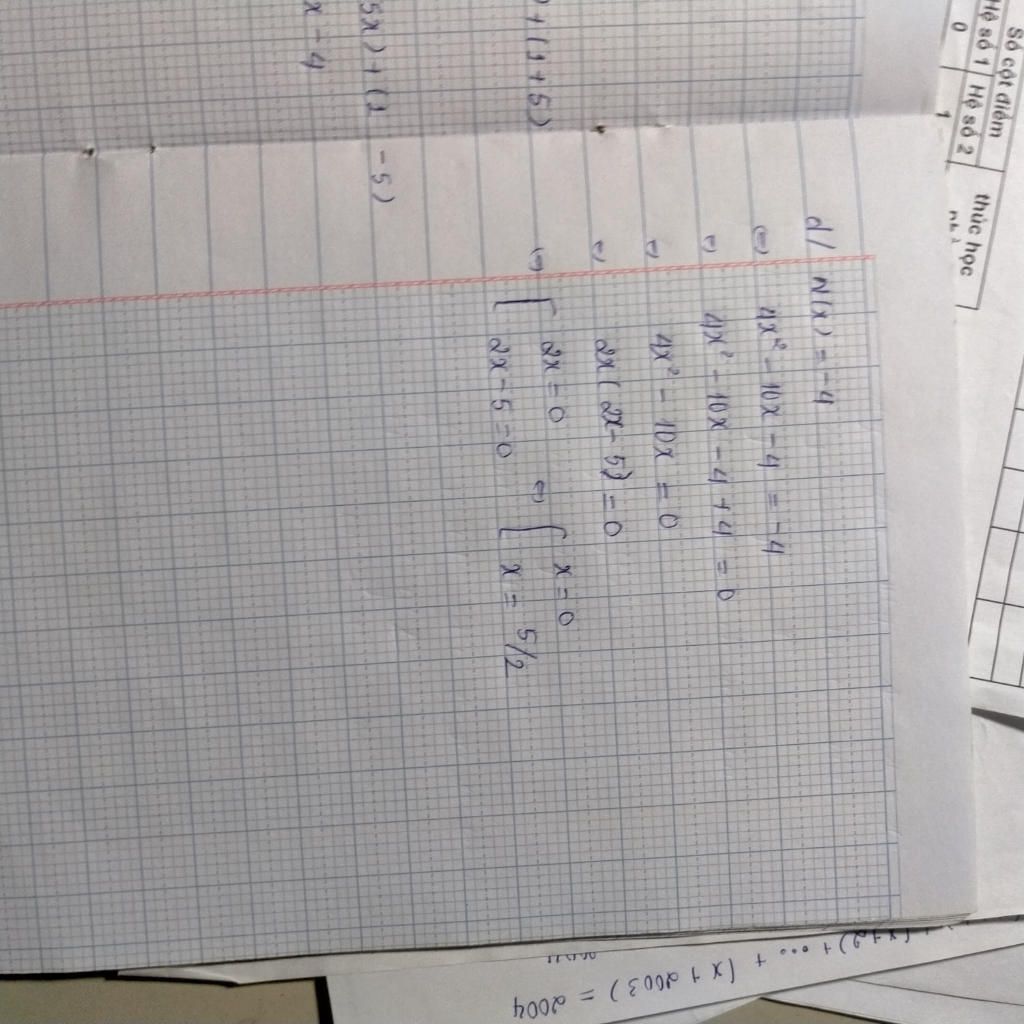 + (1 + 5)
5x) + (1 - 5)
x - 4
d/ N(x) = -4
⇔ 4x² - 10x - 4 = -4
⇔ 4x² - 10x - 4 + 4 = 0
⇔ 4x² - 10x = 0
⇔ 2x(2x - 5) = 0
⇔ [ 2x = 0 ⇔ [ x = 0
2x - 5 = 0 x = 5/2
Số cột điểm
Hệ số 1 Hệ số 2
0 1
thức học
(x+2) + ... + (x + 2003) = 2004